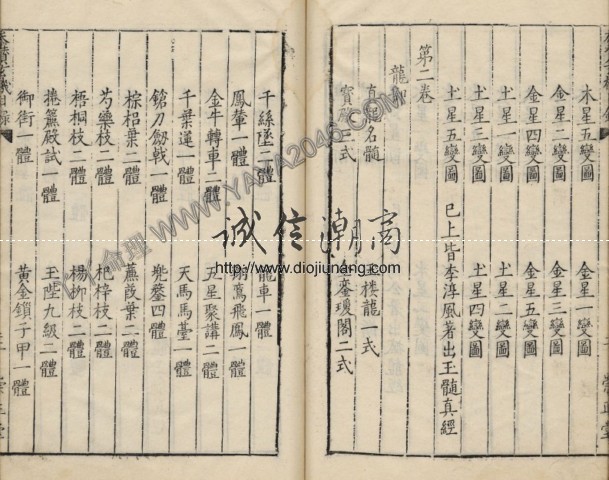 木星五變圖　金星一變圖
金星二變圖　金星三變圖
金星四變圖　金星五變圖
土星一變圖　土星二變圖
土星三變圖　土星四變圖
土星五變圖　已上皆李淳風著出玉髓真經
第二卷
龍
真龍名髓　樓龍一式
寶　二式　鑾瓊閣二式
千絲墜一體　龍車一體
鳳輦一體　翔鸞飛鳳一體
金牛轉車二體　五星聚講二體
千葉蓮一體　天馬馬臺一體
鎗刀劒戟一體　兜鍪四體
棕梠葉二體　蕉葭葉二體
芍藥枝二體　杞梓枝二體
梧桐枝二體　楊柳枝二體
捲簾殿試一體　王陛九級一體
御街一體　黃金鎖子甲一體
誠信潮商
http://www.diojiunang.com
WWW.YAYA2046.COM